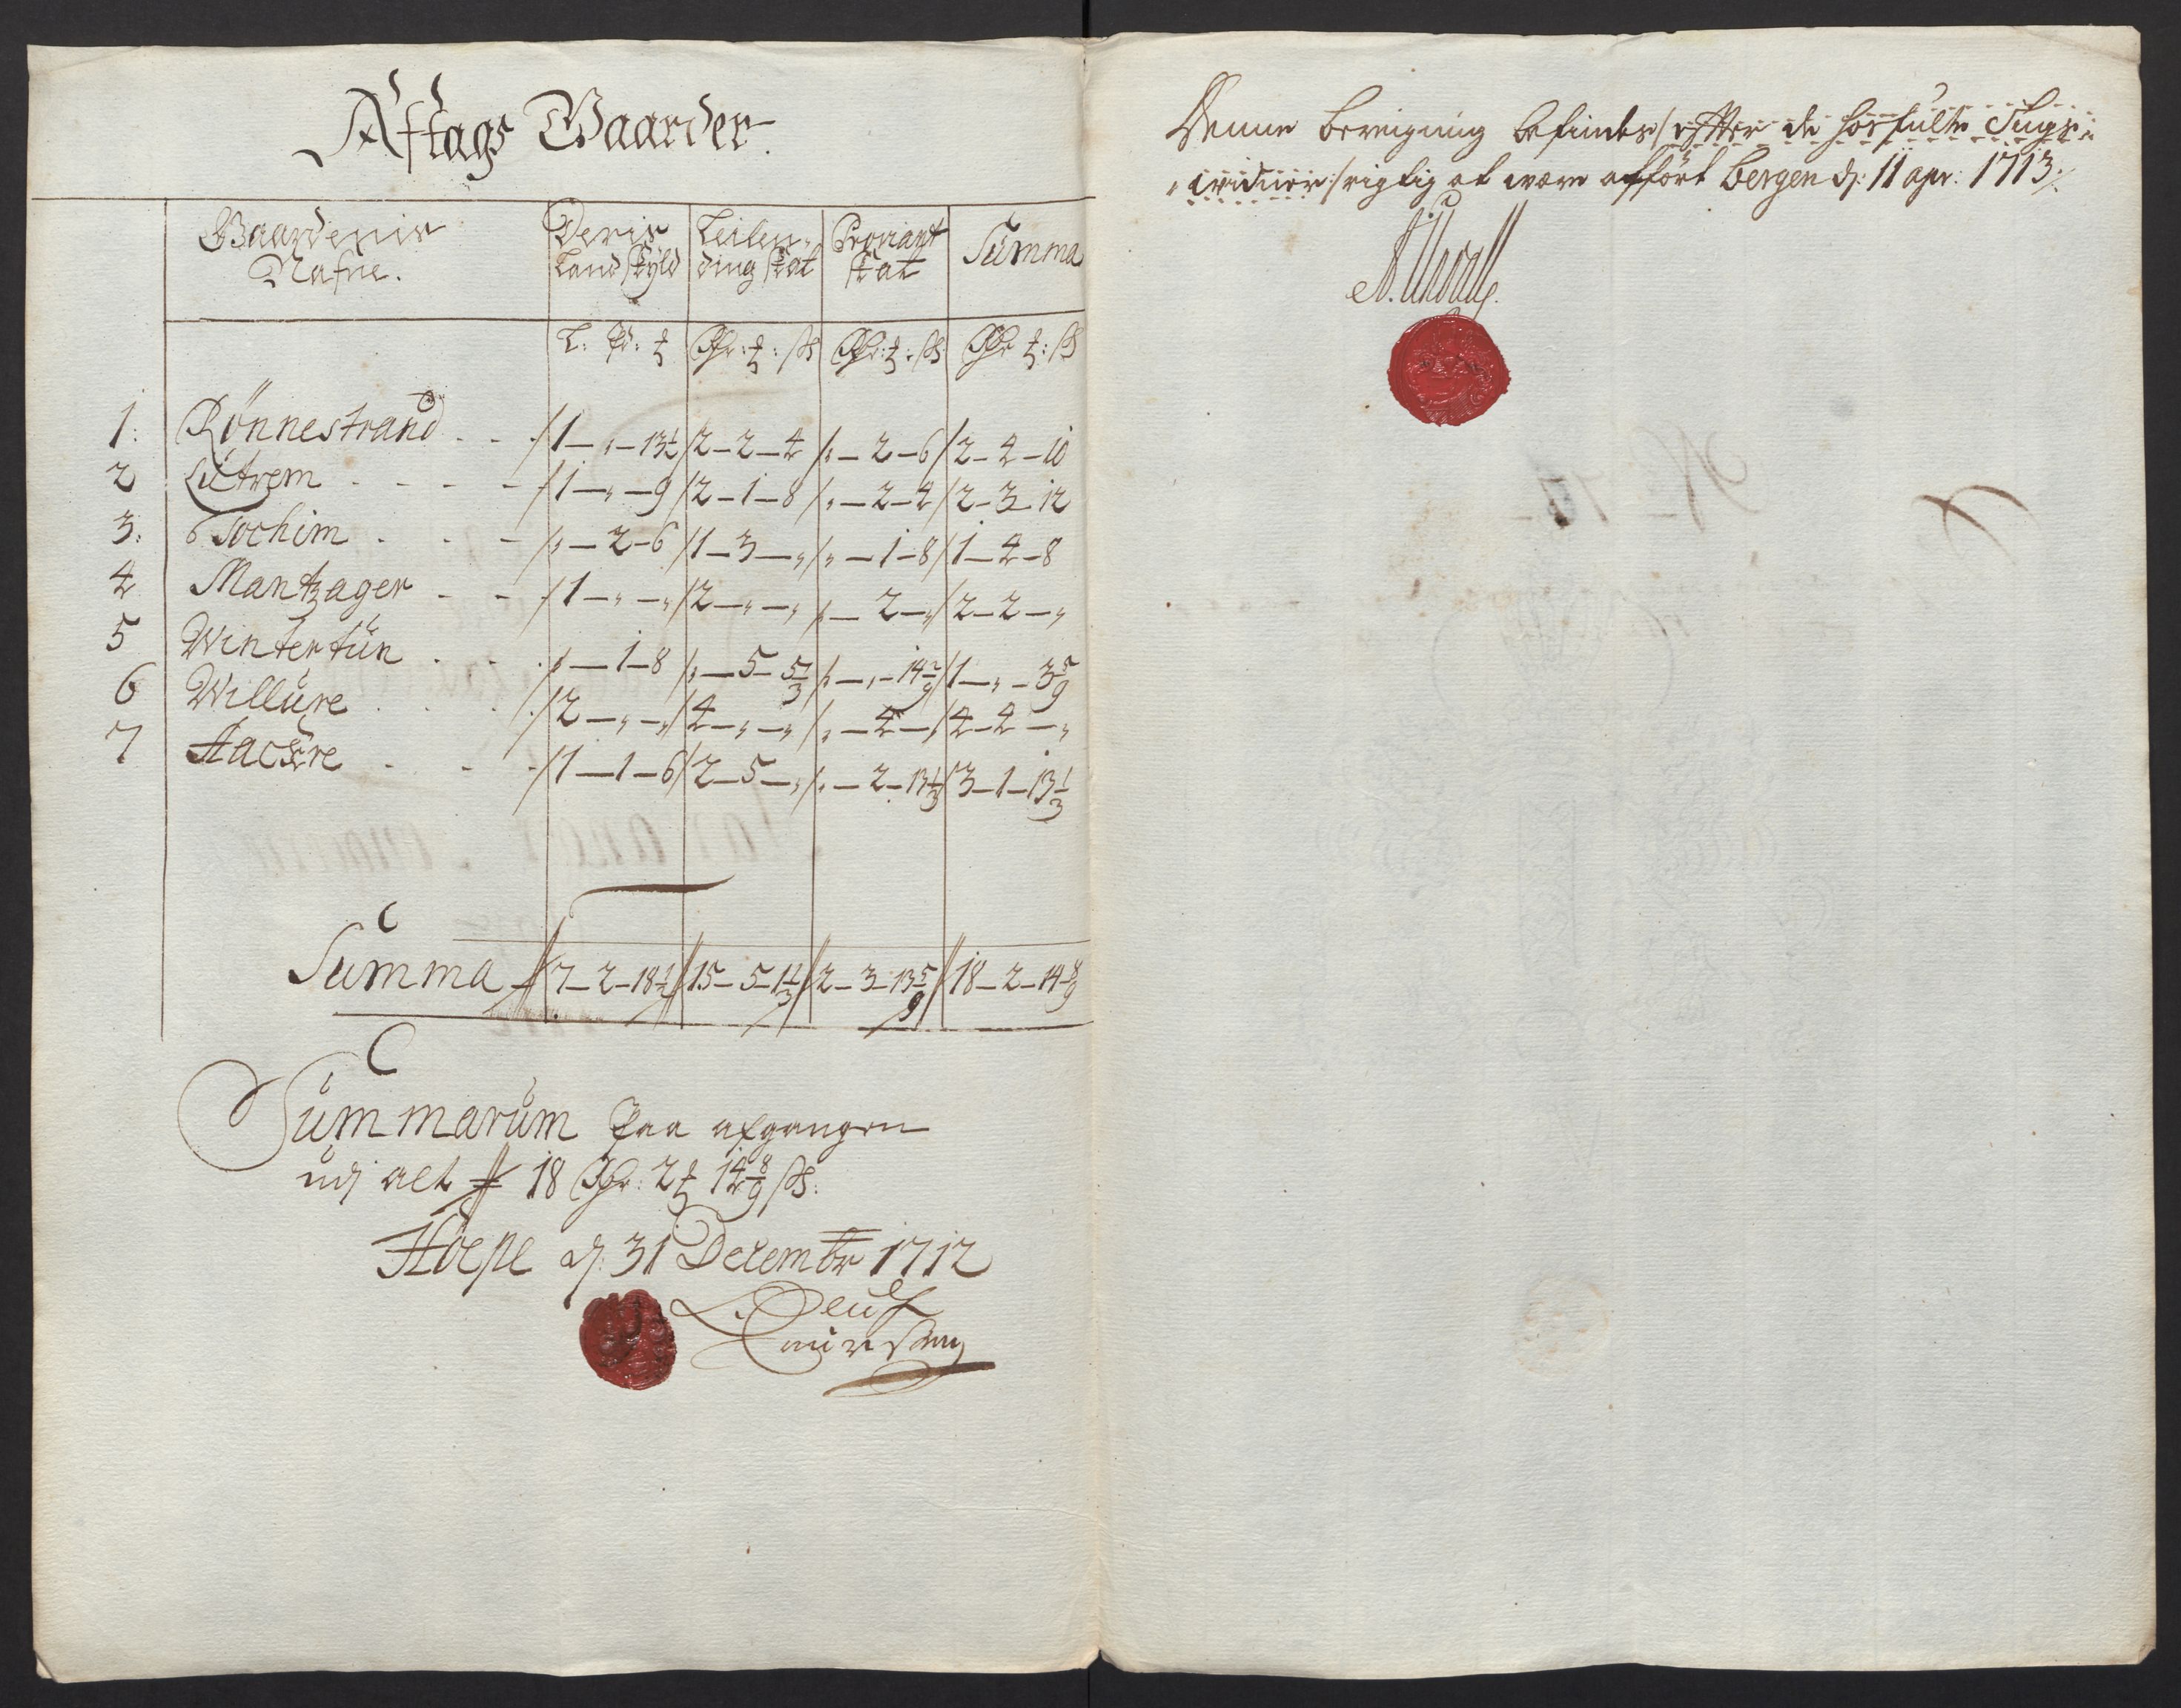 Aftags Gaarder.
Gaardenis Nafne. Deris Landskyld Leilendingskat Proviantskat Summa
L: Pd: ℔ Rdr: ℔: ß Rdr: ℔: ß Rdr ℔: ß
1: Rønnestrand - - 1 - „ - 13½ 2 - 2 - 4 „ - 2 - 6 2 - 4 - 10
2 Lutrem - - - - 1 - „ - 9 2 - 1 - 8 „ - 2 - 4 2 - 3 - 12
3: Sochim - - - „ - 2 - 6 1 - 3 - „ „ - 1 - 8 1 - 4 - 8
4 Mantzager - - 1 - „ - „ 2 - „ - „ „ - 2 - „ 2 - 2 - „
5 Wintertun - - - „ - 1 - 8 „ - 5 - 5⅓ „ - „ - 14 2/9 1 - „ - 3 5/9
6 Willure - - - 2 - „ - „ 4 - „ - „ „ - 4 - „ 4 - 4 - „
7 Aachre - - - 1 - 1 - 6 2 - 5 - „ „ - 2 - 13⅓ 3 - 1 - 13⅓
Summa 7 - 2 - 18½ 15 - 5 - 1⅓ 2 - 3 - 13 5/9 18 - 2 - 14 8/9
Summarum Paa afgangen
udj alt 18 Rdr: 2 ℔ 14 8/9 ß:
Hope dj: 31 Decembr 1712
Denne beregning befindes /: efter de hosfulte
rigtig at were afført Bergen dj: 11 apr: 1713